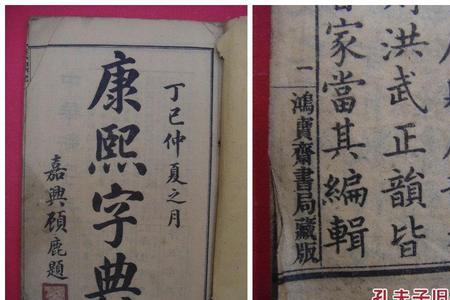 丁巳仲夏之月
康熙字典
嘉興顧鹿題
洪武正韻皆
家當其編輯
一
鴻寶齋書局藏版
孔夫子旧